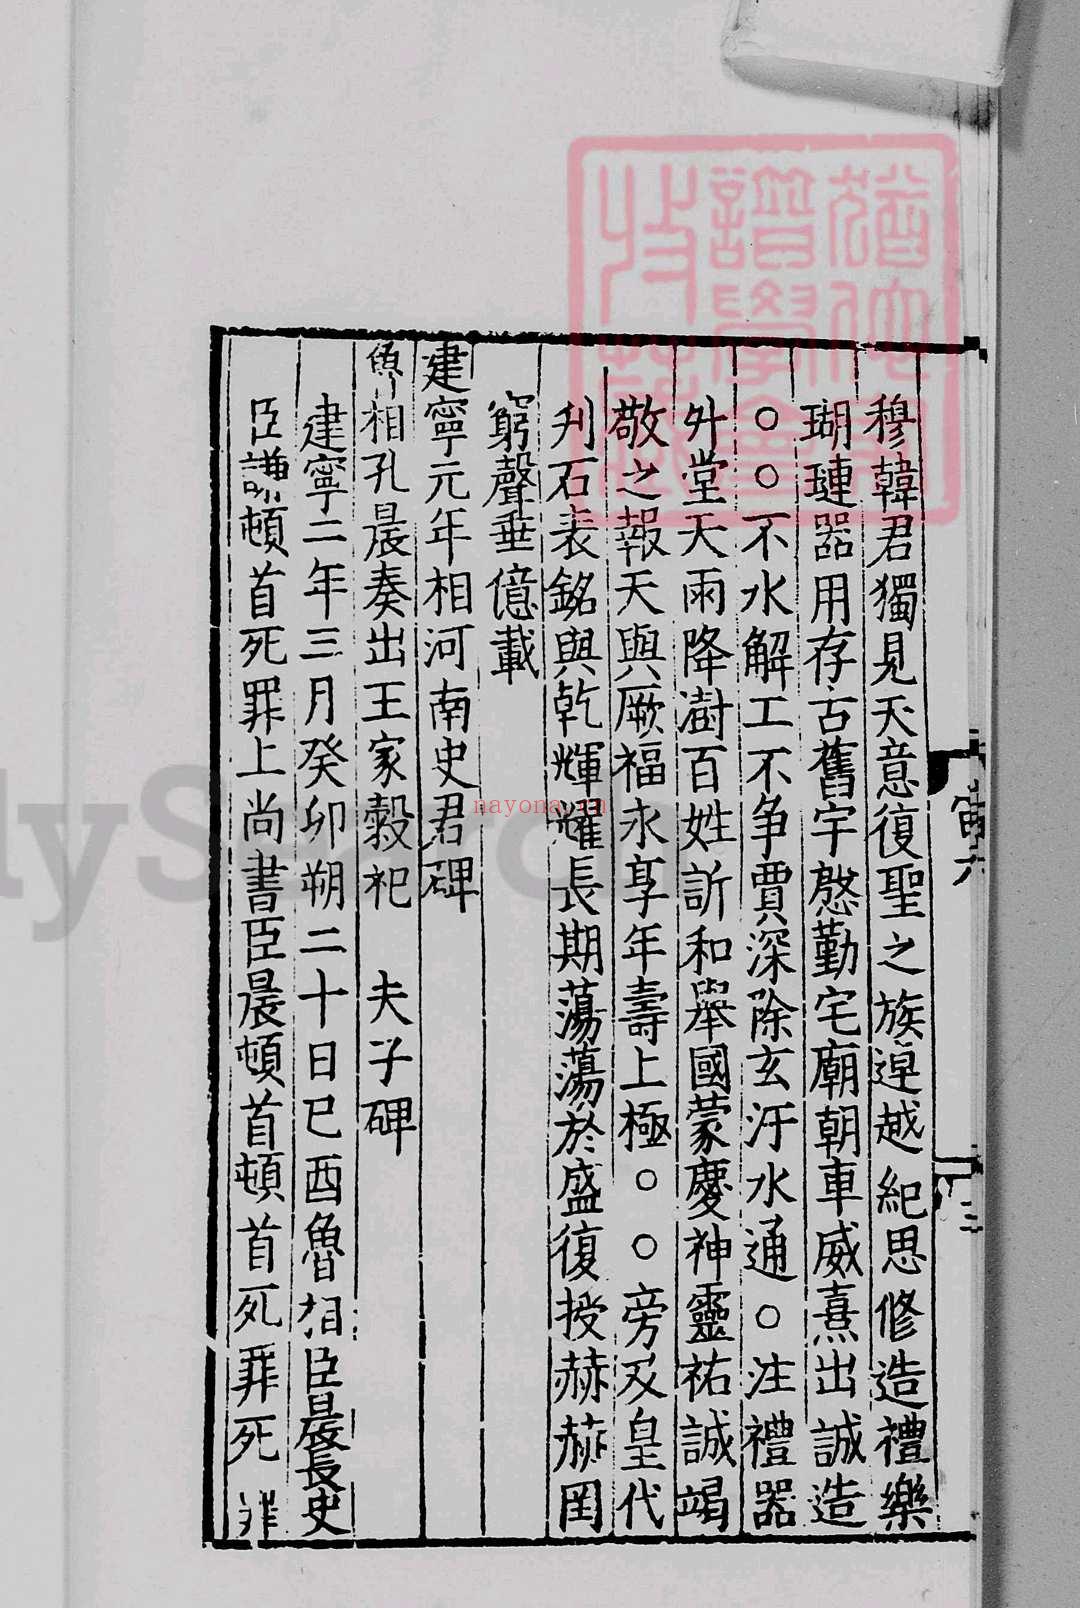 穆韓君獨見天意復聖之族逴越紀思修造禮樂
瑚璉器用存古舊宇慇勤宅廟朝車威熹出誠造
○○不水解工不争賈深除玄汙水通○注禮器
升堂天雨降澍百姓訢和舉國蒙慶神靈祐誠竭
敬之報天與厥福永享年壽上極○○旁及皇代
刋石表銘與乾輝耀長期蕩蕩於盛復授赫赫罔
窮聲垂億載
建寧元年相河南史君碑
魯相孔晨奏出王家穀祀 夫子碑
建寧二年三月癸卯朔二十日已酉魯相臣晨長史
臣謙頓首死罪上尚書臣晨頓首頓首死罪死罪
三
nayona.cn